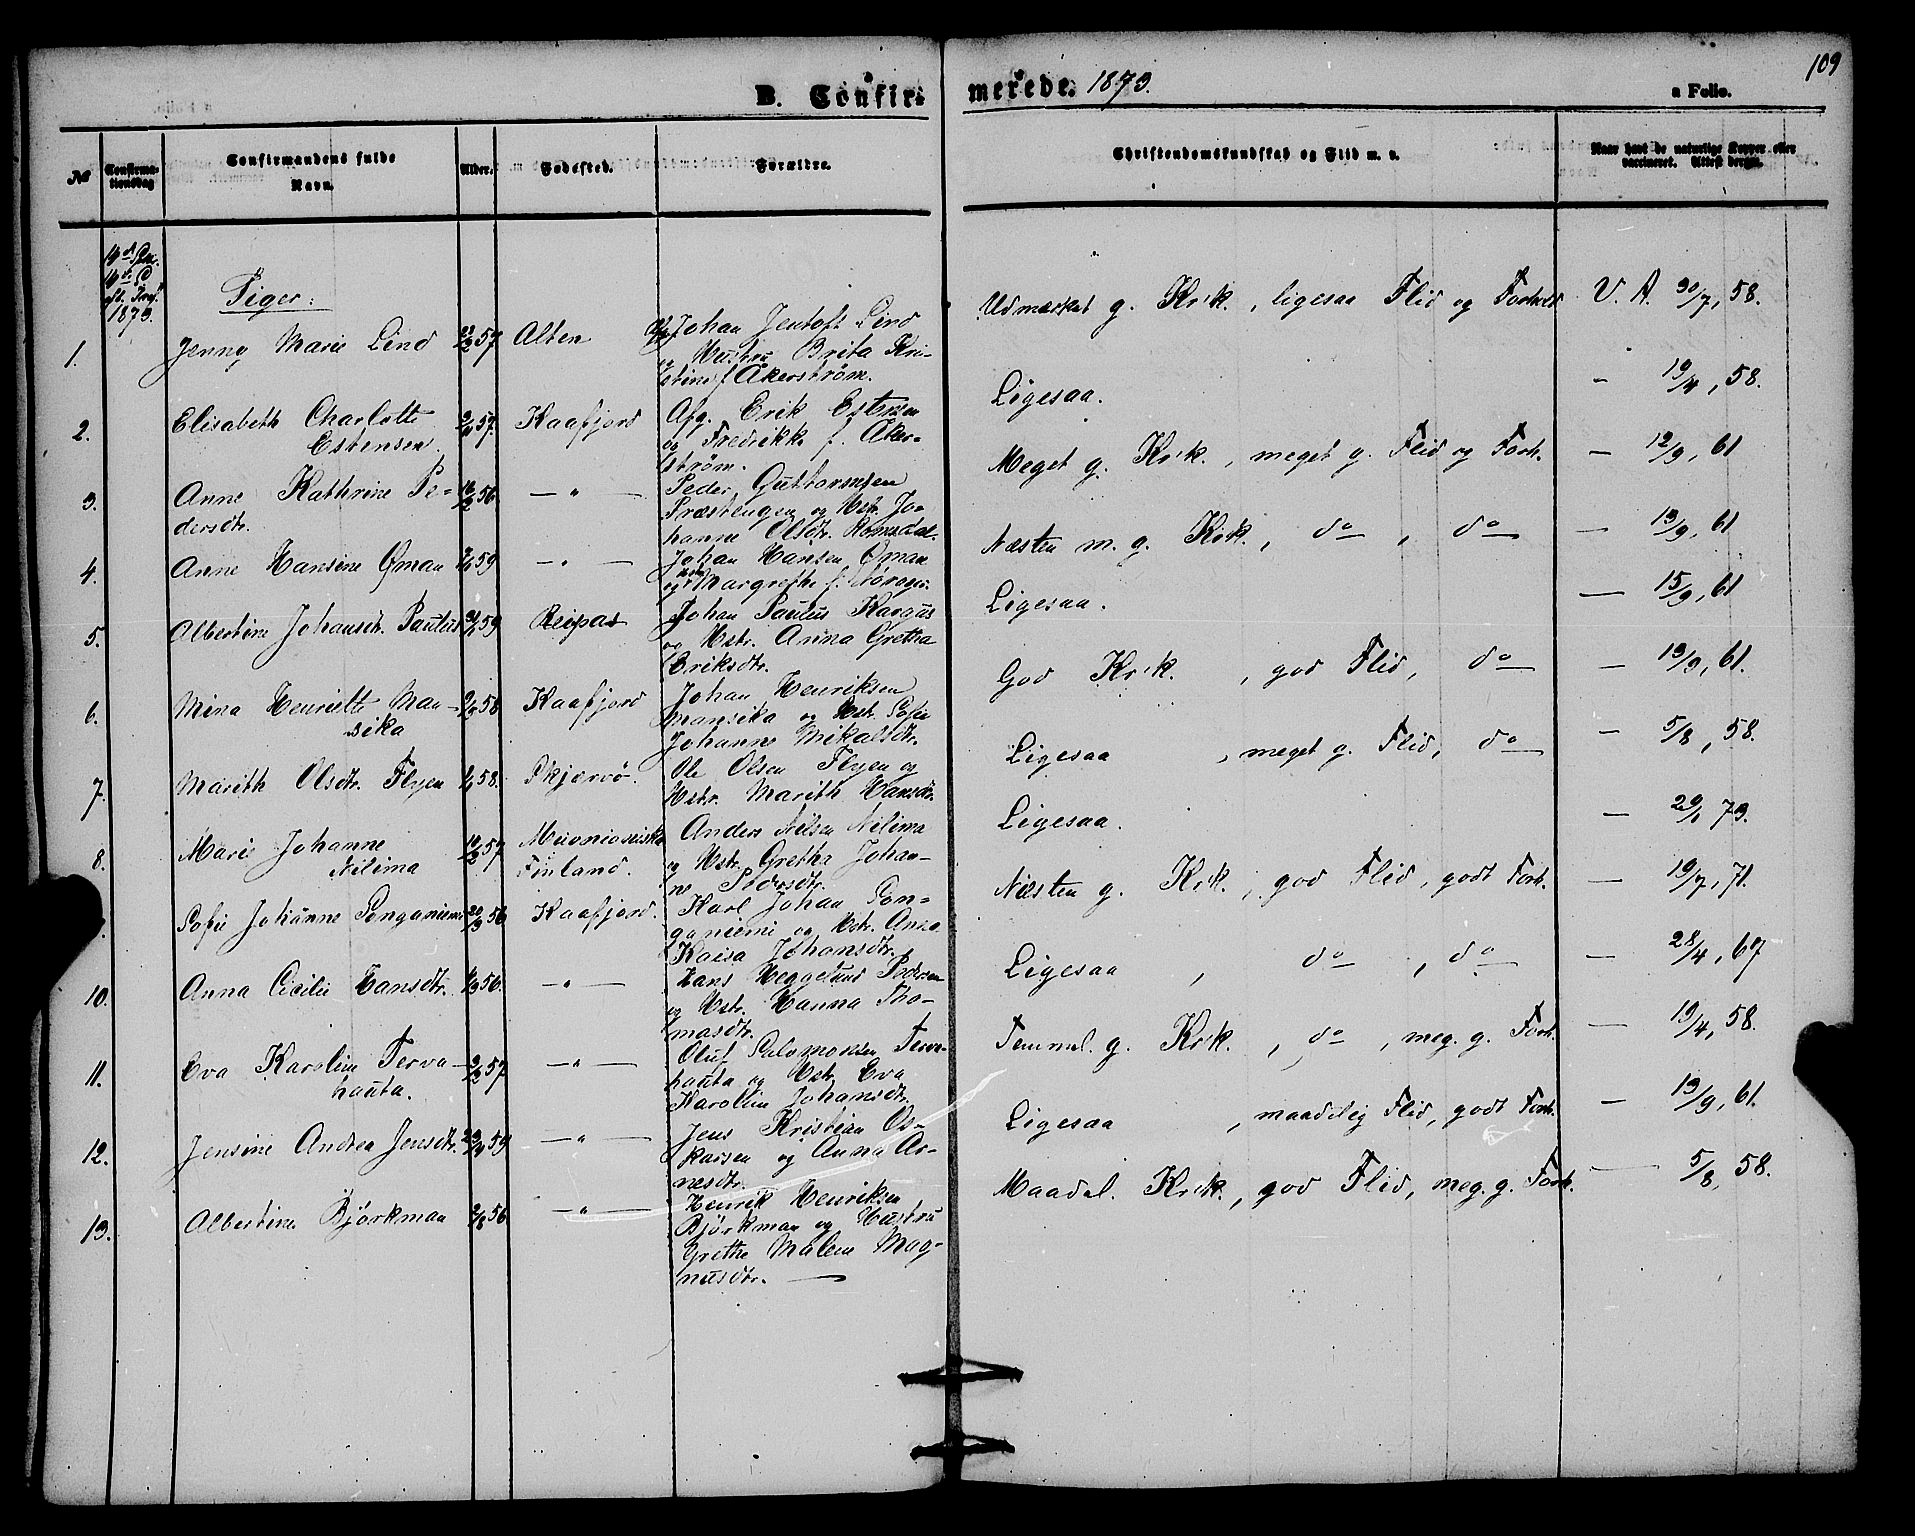 109
B. Confirmerede. 1873.
a Folio.
№ Confirmationsdag Confirmandens fulde Navn. Alder. Fødested. Forældre. Christendomskundskab og Flid m. v. Naar havt de naturlige Kopper eller vaccineret. Attest derom.
1873.
Piger:
1. Jenny Marie Lind 57 Alten Johan Jentoft Lind
og Hustru Brita Kri-
stine f. Åkerström.
Udmærket g. Krk., ligesaa Flid og Forhold V. A. 30/7, 58.
2. Elisabeth Charlotte
Estensen 57. Kaafjord Afg. Erik Estensen
og Fredrikke f. Åker-
ström.
Ligesaa. — 19/4, 58.
3. Anne Kathrine Pe-
dersdtr. 56 — " — Peder Guttormsen
Præstengen og Hstr. Jo-
hanne Olsdtr. Romsdal.
Meget g. Krk., meget g. Flid og Forh. — 12/9, 61
4. Anne Hansine Öman 59 — " — Johan Hansen Öman
og Margrethe f.
Næsten m. g. Krk., do, do — 13/9, 61
5. Albertine Johansdtr. Paulus 59 Reipas Johan Paulus Kargus
og Hstr. Anna Gretha
Eriksdtr.
Ligesaa. — 15/9, 61
6. Mina Henriette Man-
sika 58 Kaafjord Johan Henriksen
Mansika og Hstr. Sofie
Johanne Mikalsdtr.
God Krk., god Flid, do — 13/9, 61.
7. Marith Olsdtr. Flyen 58. Skjervö. Ole Olsen Flyen og
Hstr. Marith Hansdtr.
Ligesaa, meget g. Flid, do — 5/8, 58.
8. Marie Johanne
Nilima 57 Muonioniska
Finland. Anders Nilsen Nilima
og Hstr. Gretha Johan-
ne Pedersdtr.
Ligesaa. — 29/1, 73.
Sofie Johanne Ponganiemi 20/3 56 Kaafjord. Karl Johan Pon-
ganiemi og Hstr. Anna
Kaisa Johansdtr.
Næsten g. Krk., god Flid, godt Forh. — 19/7, 71.
10. Anna Cicilie Hansdtr. 56. — " — Hans Heggelund Pedersen
og Hstr. Hanna Tho-
masdtr.
Ligesaa, do, do — 28/4, 67
11. Eva Karoline Terva-
hauta. 57 — " — Oluf Salomonsen Terva-
hauta og Hstr. Eva
Karoline Johansdtr.
Temmel. g. Krk., do, meg. g. Forh. — 19/4, 58.
12. Jensine Andrea Jensdtr. 59 — " — Jens Kristian Os-
karsen og Anna Ar-
nesdtr.
Ligesaa, maadelig Flid, godt Forh. — 13/9, 61.
13. Albertine Björkman 2/8 56 — " — Henrik Henriksen
Björkman og Hustru
Grethe Malene Mag-
nusdtr. —
Maadel. Krk., god Flid, meg. g. Forh. — 5/8, 58.